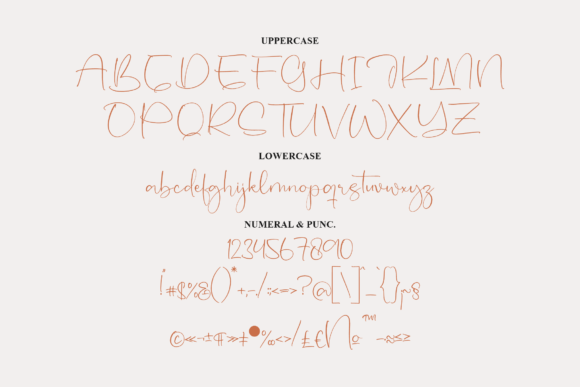 UPPERCASE
ABCDEFGHIJKLMN
OPQRSTUVWXYZ
LOWERCASE
abcdefghijklmnopqrstuvwxyz
NUMERAL & PUNC.
1234567890
!#$%&()*+,-./:;<=>?@[\]^_`{}